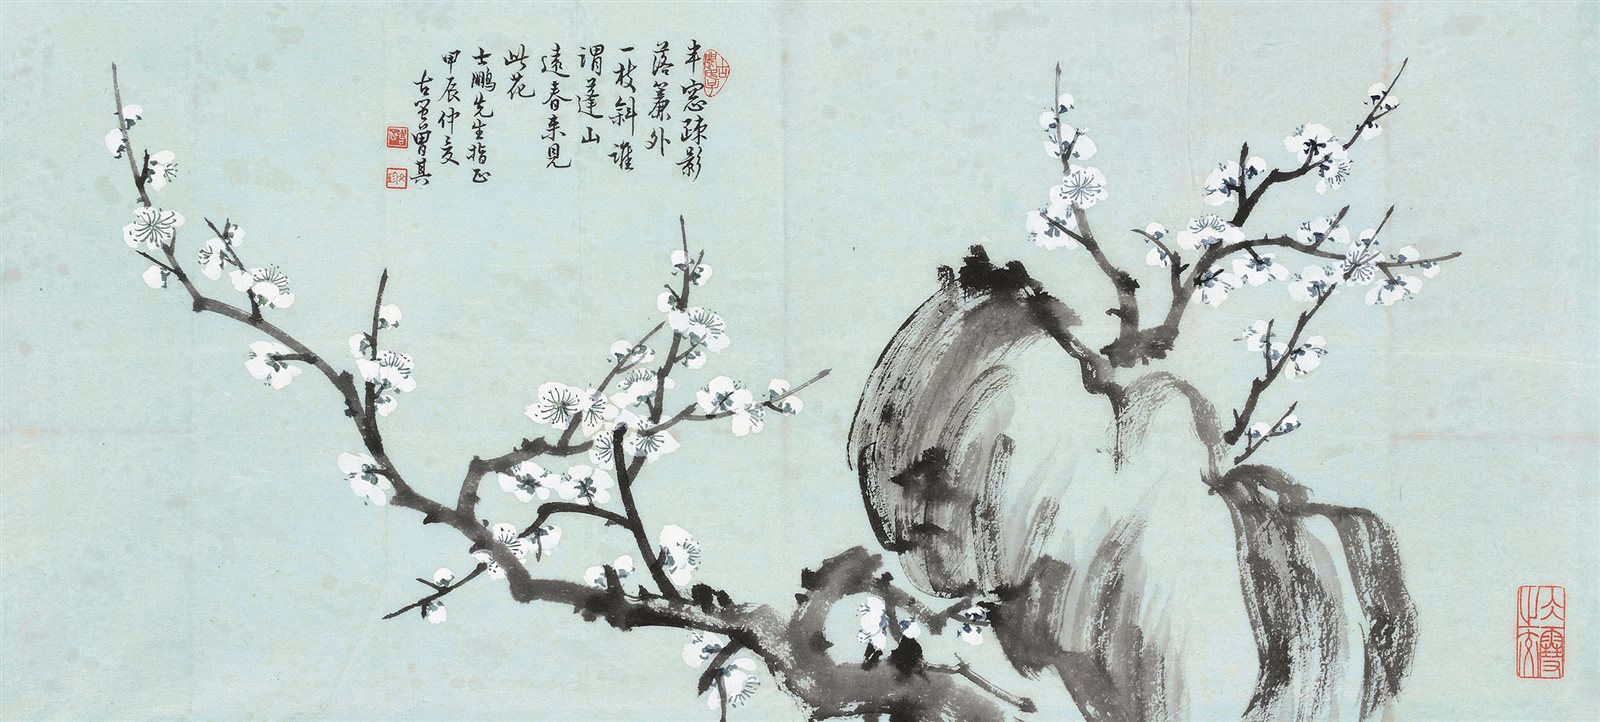 半窓疎影
落簾外
一枝斜誰
謂蓬山
遠春来見
此花
士鵬先生指正
甲辰仲夏
古雪曾其